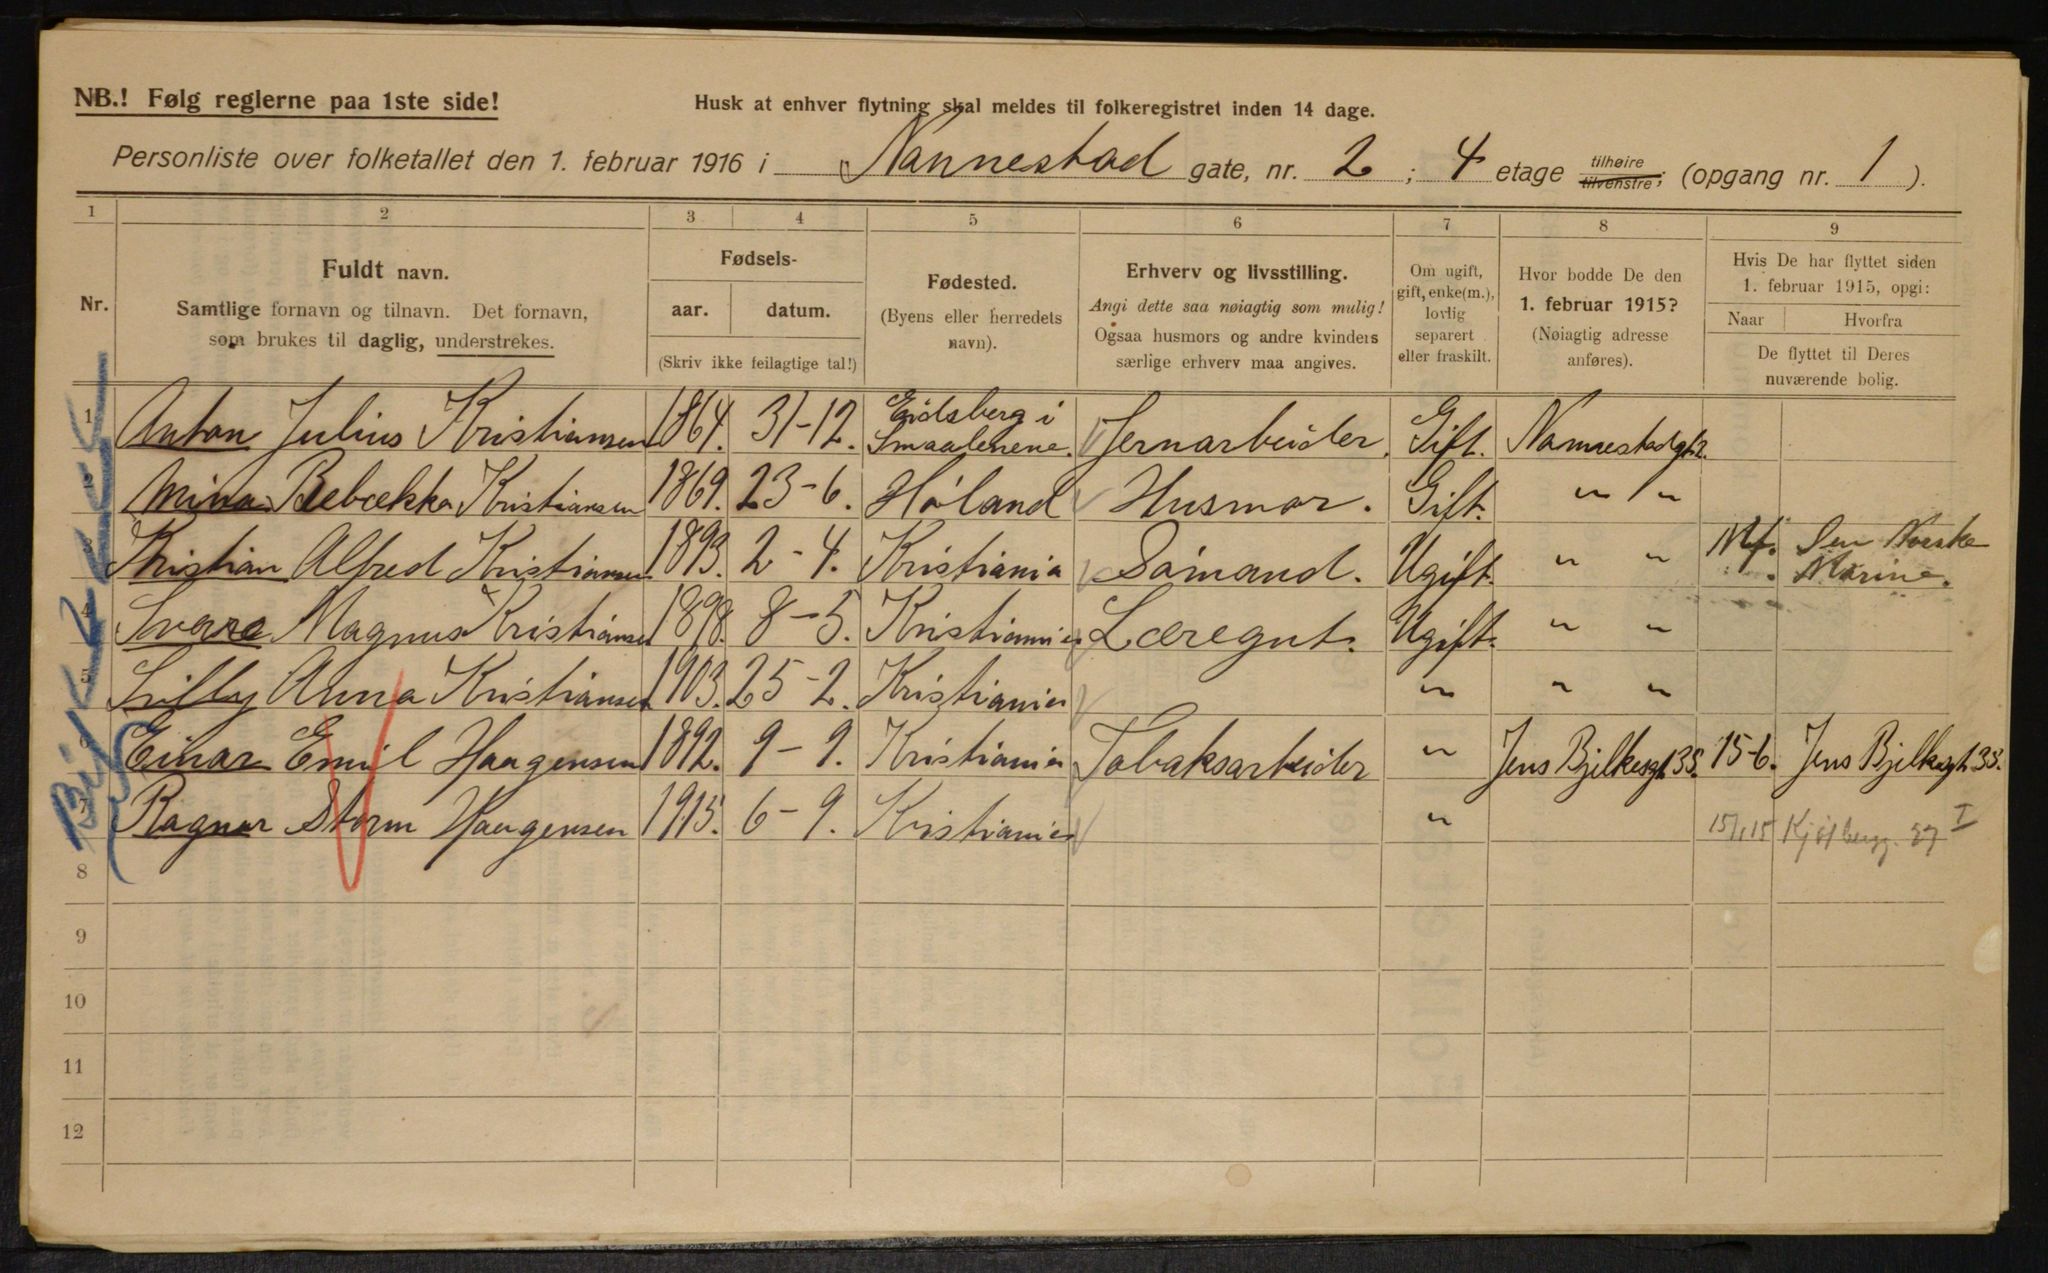 NB.! Følg reglerne paa 1ste side!
Husk at enhver flytning skal meldes til folkeregistret inden 14 dage.
Personliste over folketallet den 1. februar 1916 i Nannestad gate, nr. 2 ; 4 etage tilhøire tilvenstre; (opgang nr. 1 ).
1 2 3 4 5 6 7 8 9
Nr.
Fuldt navn.
Samtlige fornavn og tilnavn. Det fornavn,
som brukes til daglig, understrekes.
Fødsels-
aar. datum.
(Skriv ikke feilagtige tal!)
Fødested.
(Byens eller herredets
navn).
Erhverv og livsstilling.
Angi dette saa nøiagtig som mulig!
Ogsaa husmors og andre kvinders
særlige erhverv maa angives.
Om ugift,
gift, enke(m.),
lovlig
separert
eller fraskilt.
Hvor bodde De den
1. februar 1915?
(Nøiagtig adresse
anføres).
Hvis De har flyttet siden
1. februar 1915, opgi:
Naar Hvorfra
De flyttet til Deres
nuværende bolig.
1 Anton Julius Kristiansen 1864. 31-12. Eidsberg i Smaalenene. Jernarbeider. Gift. Nannestadgt. 2.
2 Mina Rebekka Kristiansen 1869. 23-6. Høland Husmor. Gift. " "
3 Kristian Alfred Kristiansen 1893. 2-4. Kristiania Sømand. Ugift. " " Den Norske Marine.
4 Sverre Magnus Kristiansen 1898. 8-5. Kristiania Læregut. Ugift. " "
5 Lilly Anna Kristiansen 1903. 25-2. Kristiania " " "
6 Einar Emil Haagensen 1892. 9-9. Kristiania Tobaksarbeider " Jens Bjelkesgt 35. 15-6. Jens Bjelkesgt 35.
7 Ragnar Storm Haagensen 1915. 6-9. Kristiania "
8
9
10
11
12